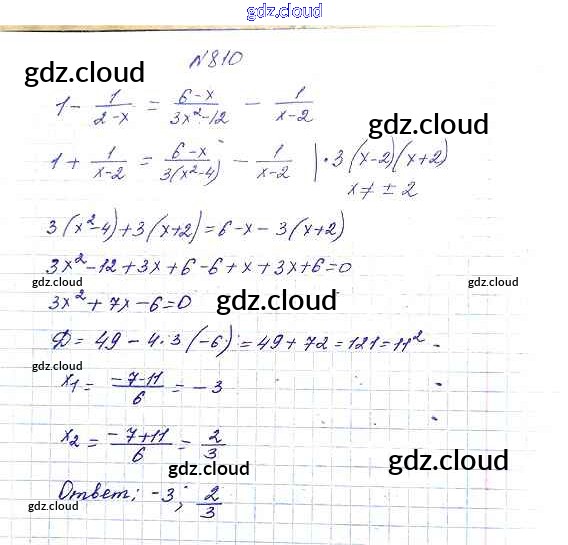 gdz.cloud
№810
gdz.cloud
1 - 1/(2-x) = (6-x)/(3x²-12) - 1/(x-2)
gdz.cloud
1 + 1/(x-2) = (6-x)/(3(x²-4)) - 1/(x-2) | · 3(x-2)(x+2)
x ≠ ± 2
3(x²-4)+3(x+2)=6-x-3(x+2)
3x²-12+3x+6-6+x+3x+6=0
gdz.cloud
gdz.cloud
3x²+7x-6=0
gdz.cloud
Д = 49 - 4·3(-6) = 49+72=121=11²
gdz.cloud
x₁ = (-7-11)/6 = -3
gdz.cloud
x₂ = (-7+11)/6 = 2/3
gdz.cloud
gdz.cloud
Ответ: -3; 2/3
gdz.cloud